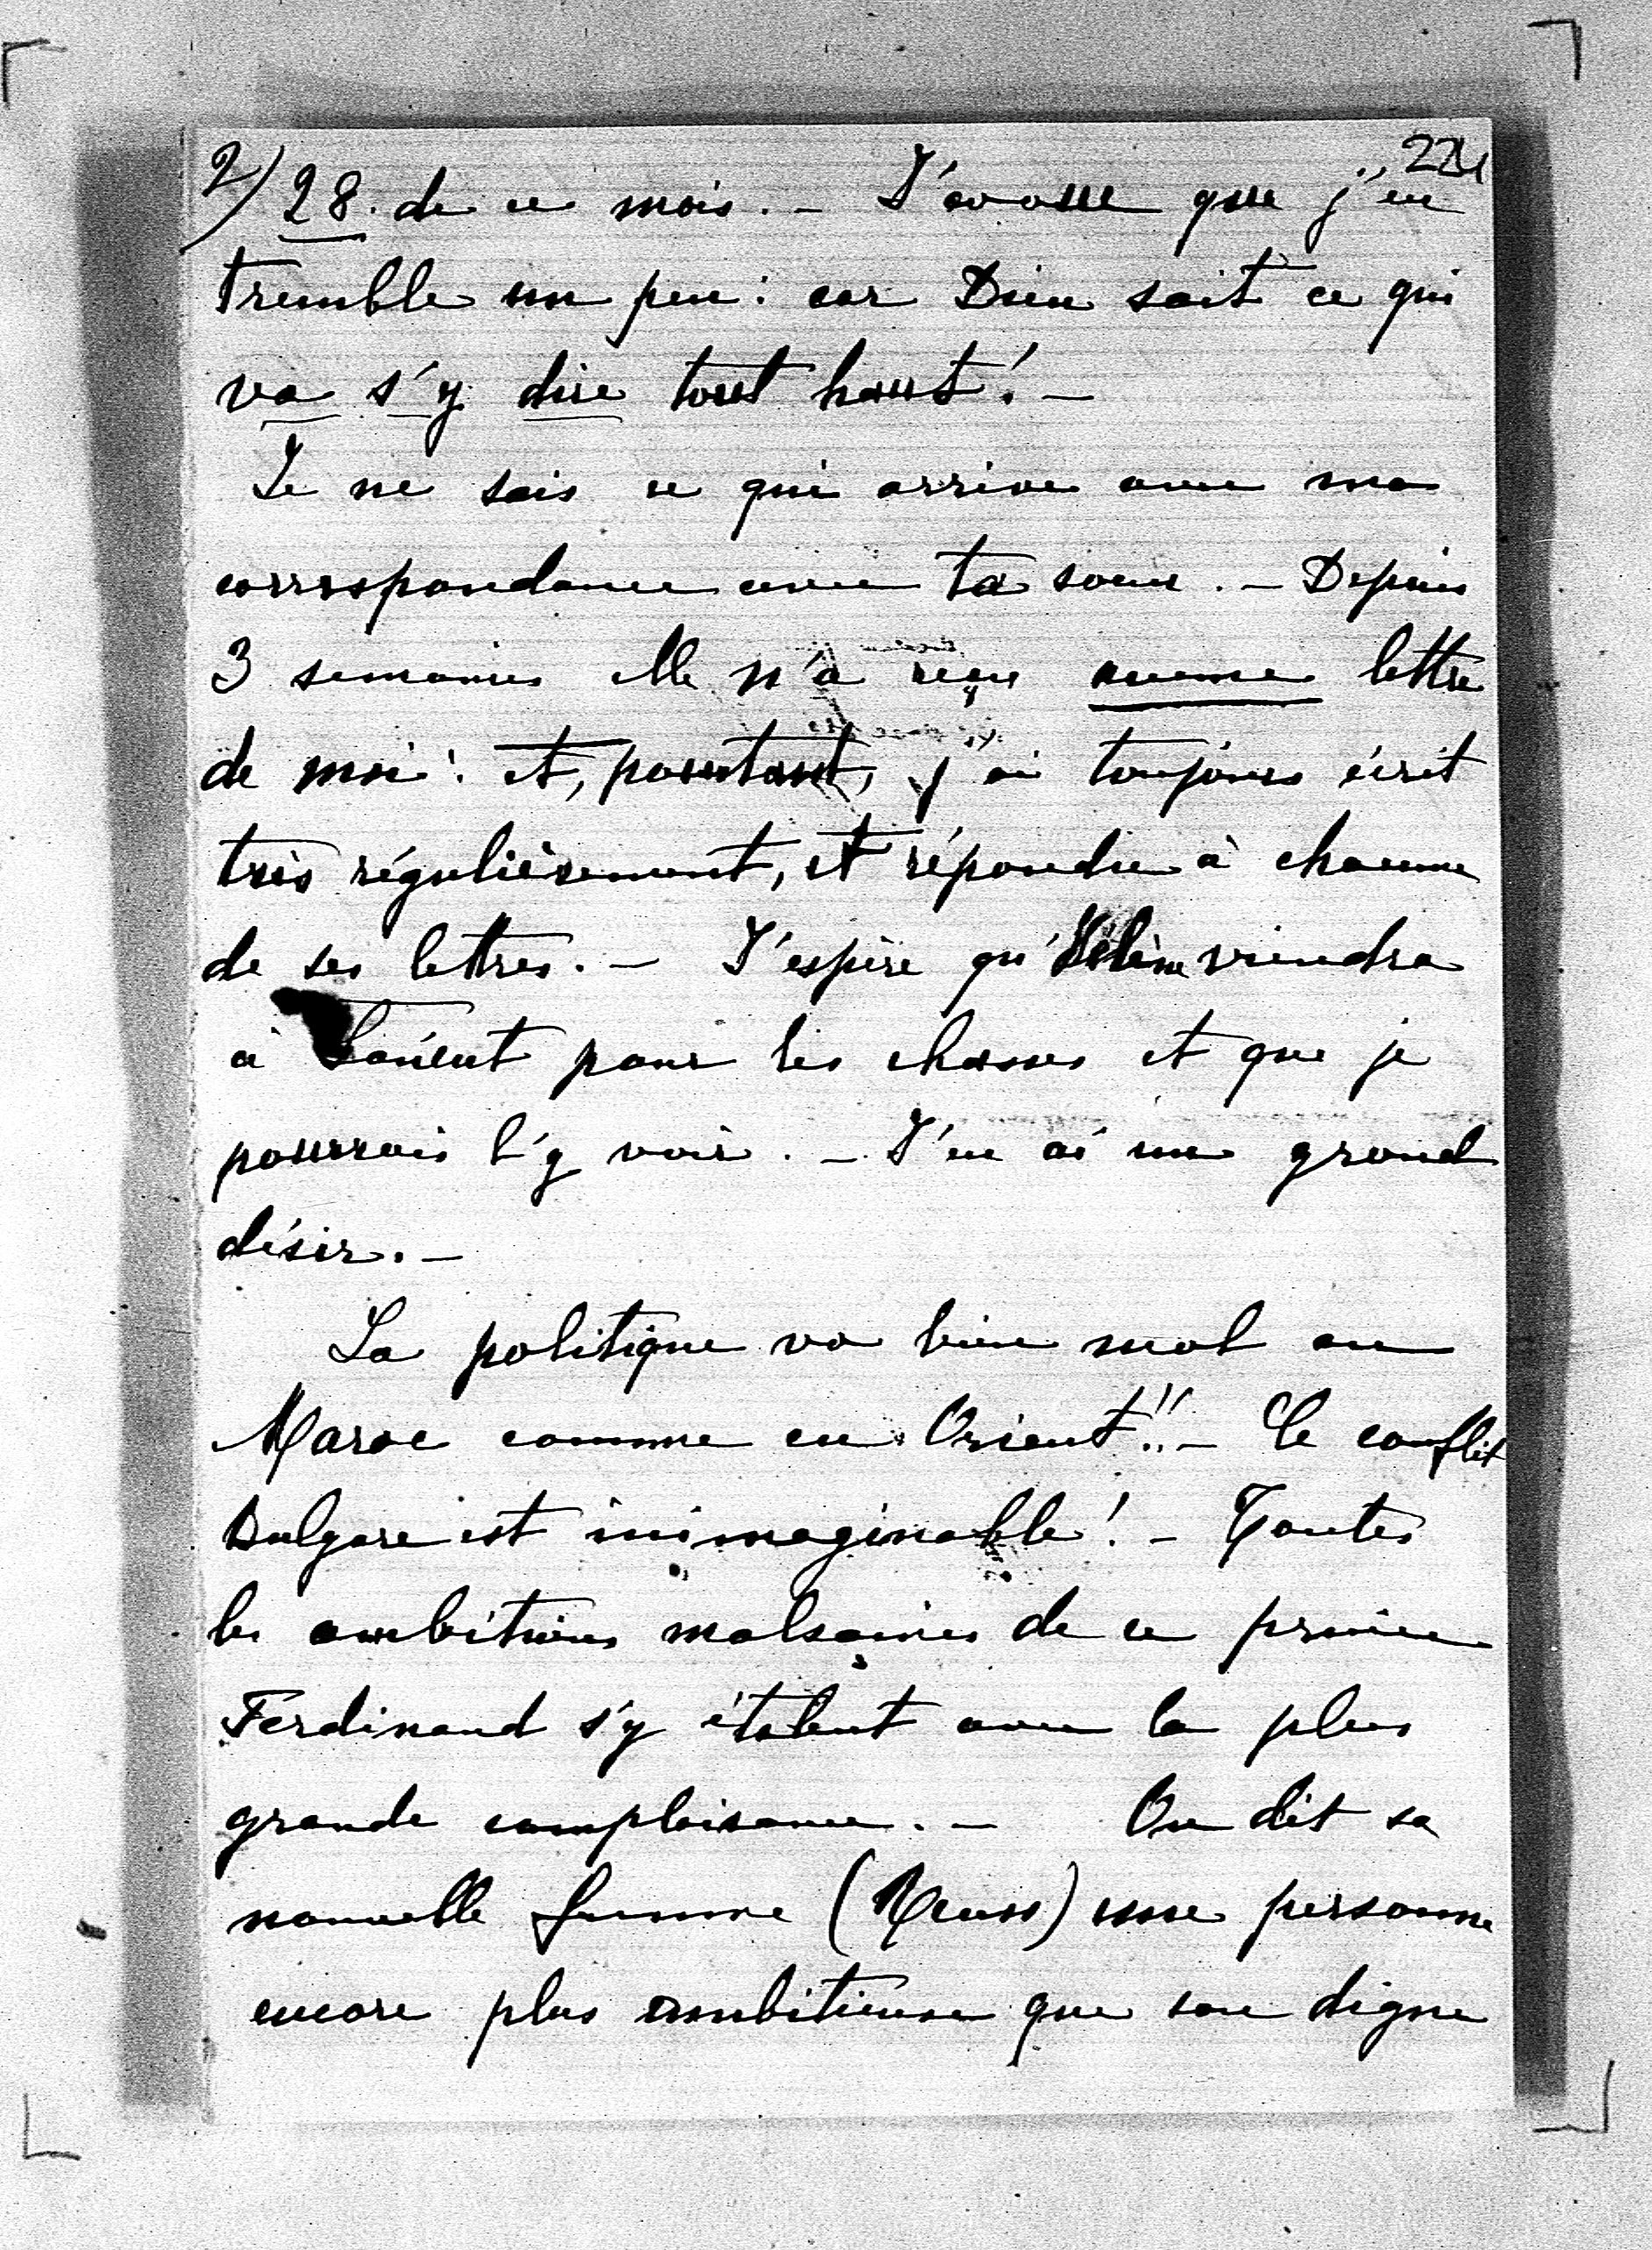 2/ 28. de ce mois. – J'avoue que j'en
224
tremble un peu : car Dieu sait ce qui
va s'y dire tout haut ! –
Je ne sais ce qui arrive avec ma
correspondance avec ta soeur. – Depuis
3 semaines elle n'a reçu aucune lettre
de moi : et, pourtant, j'ai toujours écrit
très régulièrement, et répondu à chacune
de ses lettres. – J'espère qu'Hélène viendra
à pour les chasses et que je
pourrais l'y voir. – J'en ai un grand
désir. –
La politique va bien mal au
Maroc comme en Orient !! – Le conflit
Bulgare est inimaginable ! – Toutes
les ambitions malsaines de ce prince
Ferdinand s'y étalent avec la plus
grande complaisance. – On dit sa
nouvelle femme (Reuss) une personne
encore plus ambitieuse que son digne